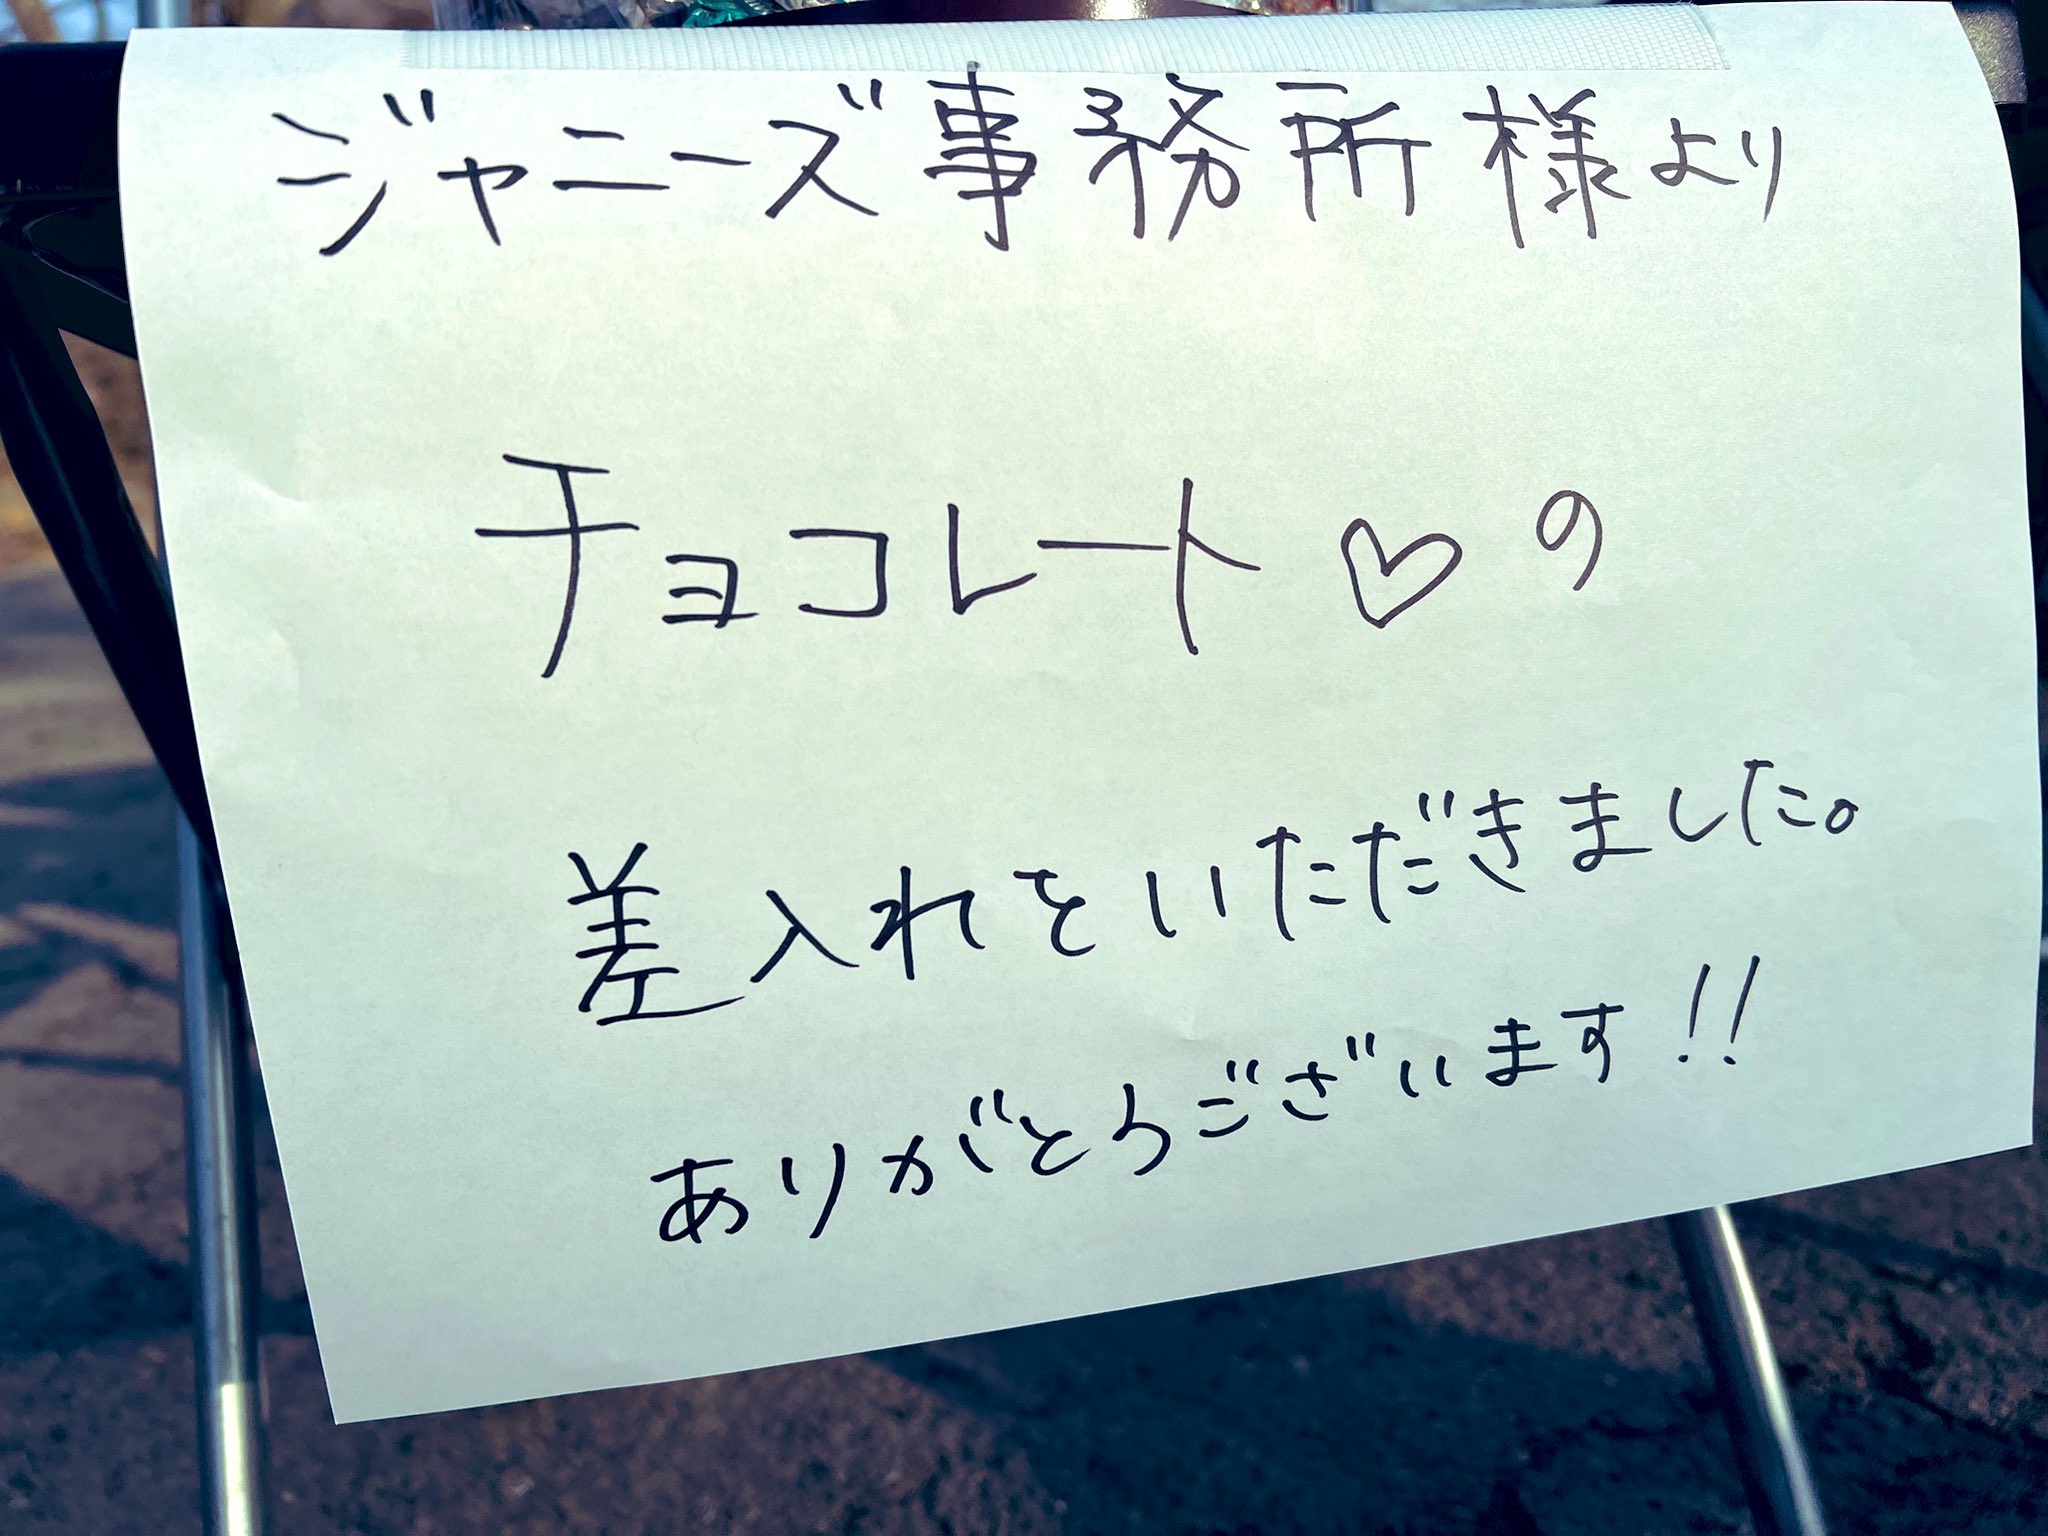 ジャニーズ事務所様より
チョコレート♡の
差入れをいただきました。
ありがとうございます!!